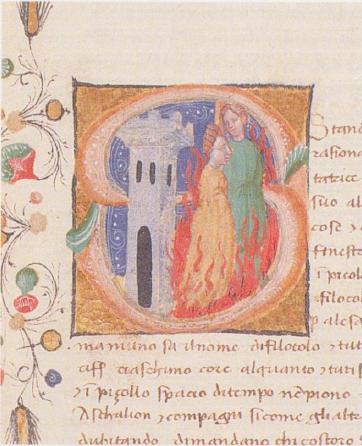 Stand
rasiona
tatrice
suo al
cose 
finest
i picol
filoco
p ales
maninno fa ilnome difilocolo 
ciaschuno core alquanto 
spacio ditempo nepiono
Aschalion compagni sicome gli altr
dubitando dimandano chi costoro